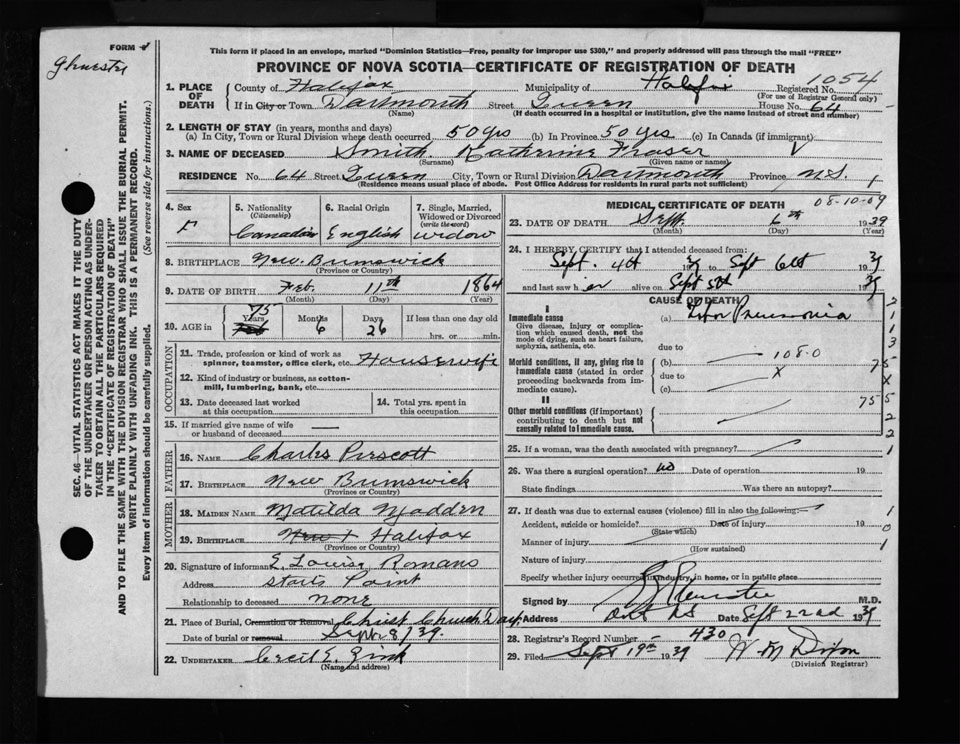 FORM 4
This form if placed in an envelope, marked "Dominion Statistics—Free, penalty for improper use $300," and properly addressed will pass through the mail "FREE"
PROVINCE OF NOVA SCOTIA—CERTIFICATE OF REGISTRATION OF DEATH
1054
1. PLACE OF DEATH
County of Halifax Municipality of Halifax Registered No.
(For use of Registrar General only)
If in City or Town Dartmouth Street Queen House No. 64
(Name) (If death occurred in a hospital or institution, give the name instead of street and number)
2. LENGTH OF STAY (in years, months and days)
(a) In City, Town or Rural Division where death occurred 50 yrs (b) In Province 50 yrs (c) In Canada (if immigrant)
3. NAME OF DECEASED Smith Katherine Fraser
(Surname) (Given name or names)
RESIDENCE No. 64 Street Queen City, Town or Rural Division Dartmouth Province N.S.
(Residence means usual place of abode. Post Office Address for residents in rural parts not sufficient)
4. Sex F
5. Nationality (Citizenship) Canadian
6. Racial Origin English
7. Single, Married, Widowed or Divorced (write the word) widow
8. BIRTHPLACE New Brunswick
(Province or Country)
9. DATE OF BIRTH Feb. 11th 1864
(Month) (Day) (Year)
10. AGE in 75 Years Months 6 Days 26 If less than one day old
hrs. or min.
OCCUPATION
11. Trade, profession or kind of work as spinner, teamster, office clerk, etc. Housewife
12. Kind of industry or business, as cotton-mill, lumbering, bank, etc.
13. Date deceased last worked at this occupation
14. Total yrs. spent in this occupation
15. If married give name of wife or husband of deceased
FATHER
16. NAME Charles Prescott
17. BIRTHPLACE New Brunswick
(Province or Country)
MOTHER
18. MAIDEN NAME Matilda Madden
19. BIRTHPLACE Halifax
(Province or Country)
20. Signature of informant E. Louise Romans
Address Point
Relationship to deceased none
21. Place of Burial, Cremation or Removal Christ Church Dart
Date of burial or removal Sept 8/39
22. UNDERTAKER Cecil E. Zink
(Name and address)
MEDICAL CERTIFICATE OF DEATH
08-10-09
23. DATE OF DEATH Sept 6th 1939
(Month) (Day) (Year)
24. I HEREBY CERTIFY that I attended deceased from:
Sept. 4th 39 to Sept 6th 1939
and last saw her alive on Sept 5th 1939
CAUSE OF DEATH
I
Immediate cause (a) Lobar Pneumonia
Give disease, injury or complication which caused death, not the mode of dying, such as heart failure, asphyxia, asthenia, etc.
due to
Morbid conditions, if any, giving rise to immediate cause (stated in order proceeding backwards from immediate cause).
(b) 108.0
due to X
(c)
II
Other morbid conditions (if important) contributing to death but not causally related to immediate cause.
25. If a woman, was the death associated with pregnancy?
26. Was there a surgical operation? no Date of operation 19
State findings Was there an autopsy?
27. If death was due to external causes (violence) fill in also the following:—
Accident, suicide or homicide? Date of injury 19
(State which)
Manner of injury
(How sustained)
Nature of injury
Specify whether injury occurred in industry, in home, or in public place
Signed by M.D.
Address Dart NS Date Sept 22nd 1939
28. Registrar's Record Number 430
29. Filed Sept 19th 1939 W M Dixon
(Division Registrar)
SEC. 46—VITAL STATISTICS ACT MAKES IT THE DUTY
OF THE UNDERTAKER OR PERSON ACTING AS UNDER-
TAKER TO OBTAIN ALL THE PARTICULARS REQUIRED
IN THE "CERTIFICATE OF REGISTRATION OF DEATH"
AND TO FILE THE SAME WITH THE DIVISION REGISTRAR WHO SHALL ISSUE THE BURIAL PERMIT.
WRITE PLAINLY WITH UNFADING INK. THIS IS A PERMANENT RECORD.
Every item of information should be carefully supplied. (See reverse side for instructions.)